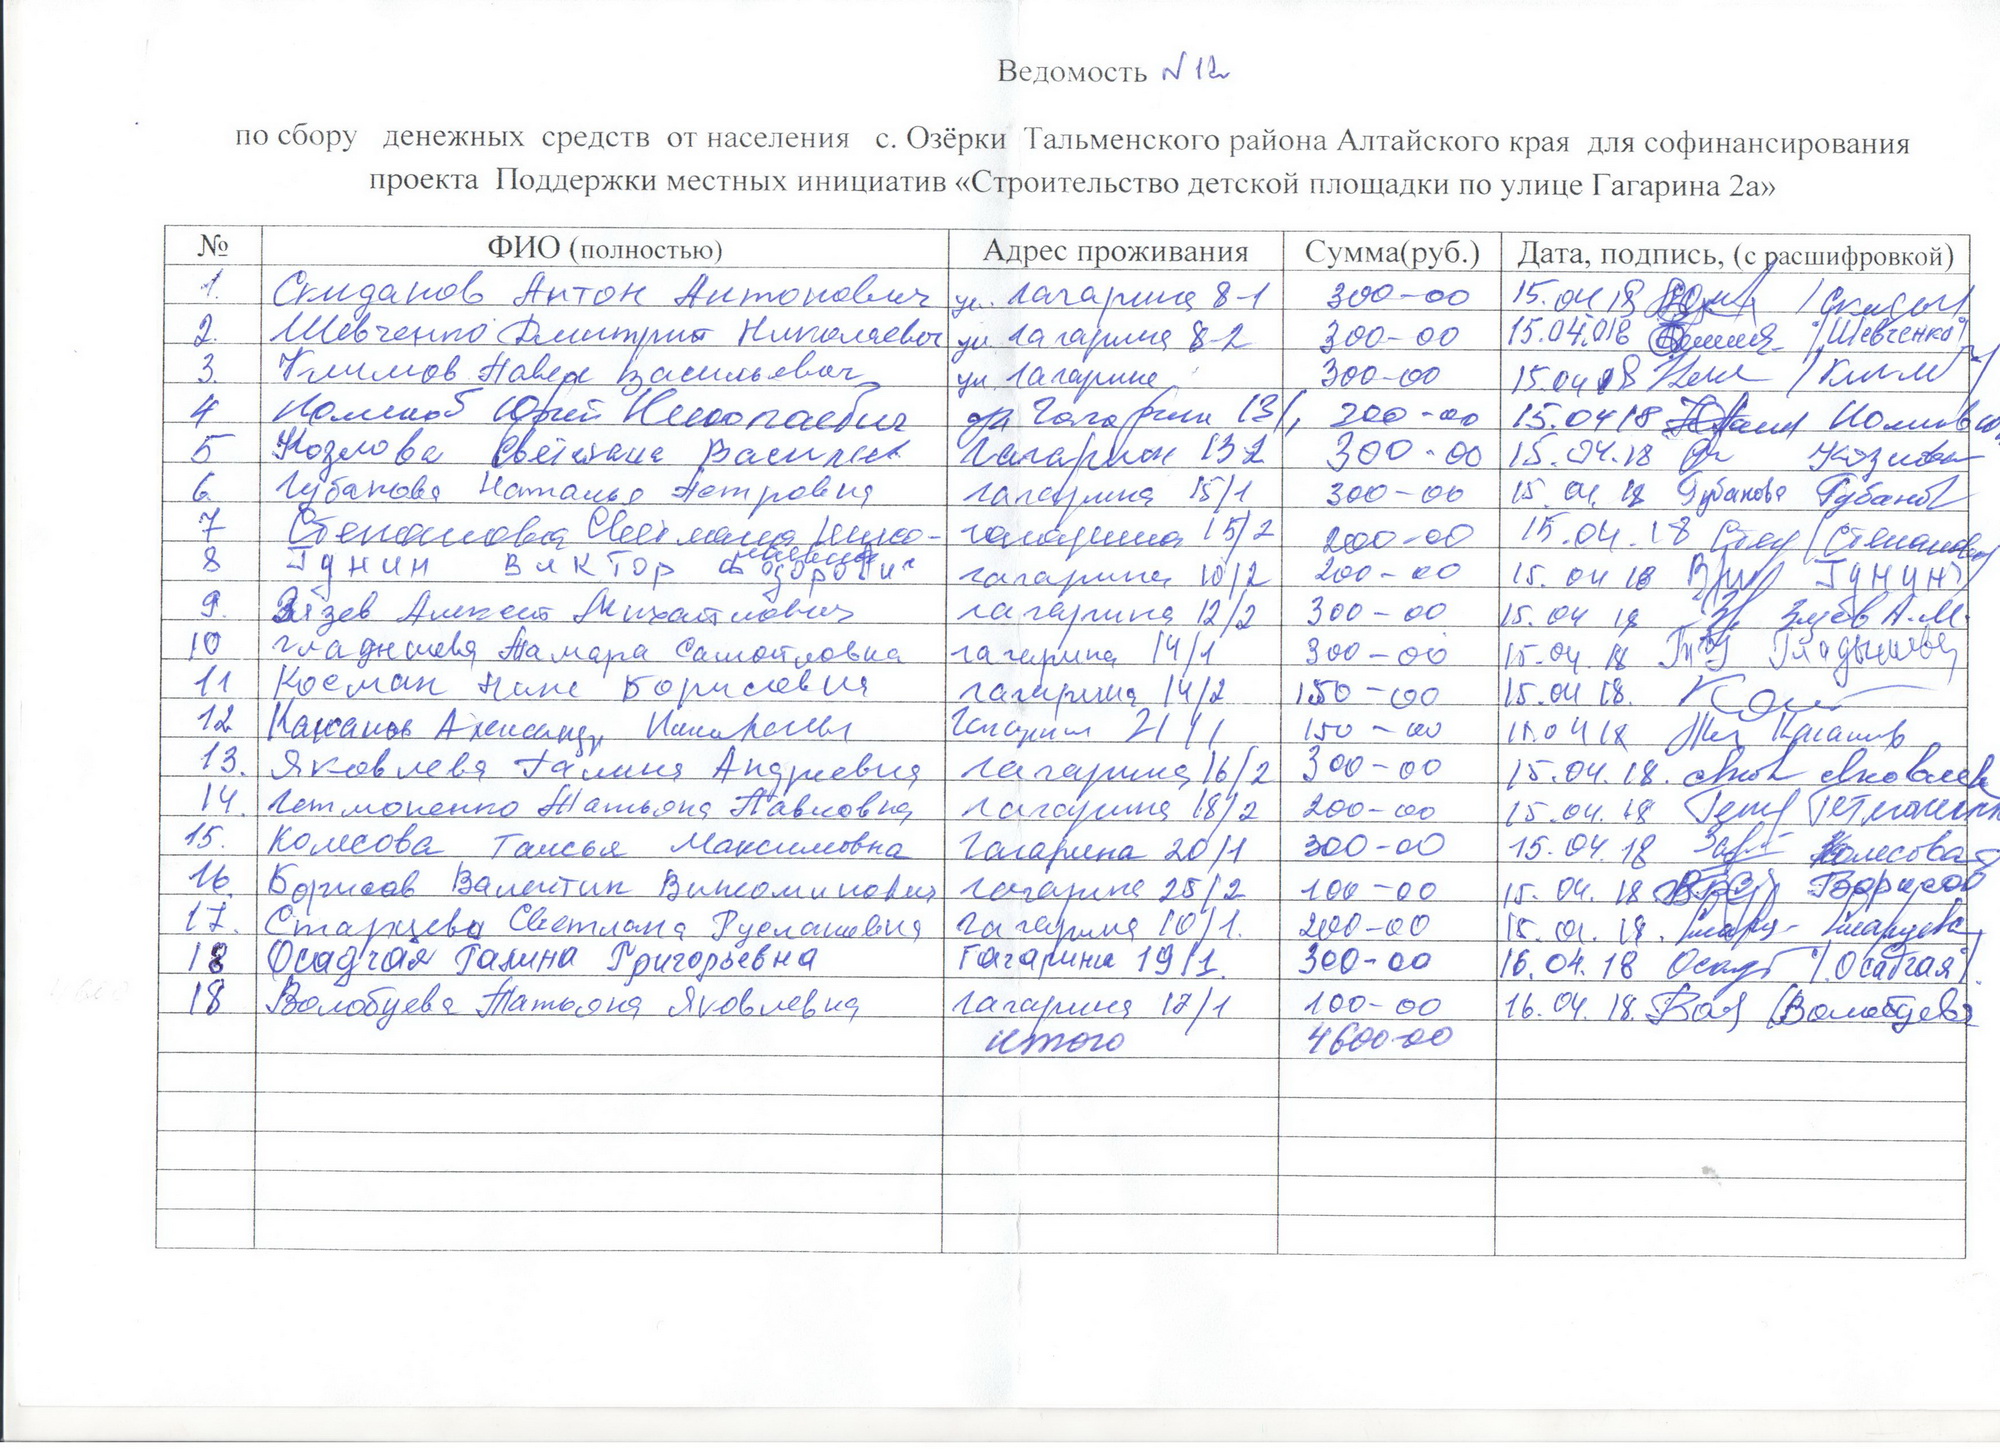 Ведомость N 12
по сбору денежных средств от населения с. Озёрки Тальменского района Алтайского края для софинансирования
проекта Поддержки местных инициатив «Строительство детской площадки по улице Гагарина 2а»
№ ФИО (полностью) Адрес проживания Сумма(руб.) Дата, подпись, (с расшифровкой)
1. Скиданов Антон Антонович ул. Гагарина 8-1 300-00 15.04 18
2. Шевченко Дмитрий Николаевич ул. Гагарина 8-2 300-00 15.04.018 /Шевченко/
3. Климов Павел Васильевич ул. Гагарина 300-00 15.04 18
4 Юрий Гагарина 13/1 200-00 15.04 18
5 Козлова Светлана Гагарина 13 2 300-00 15.04.18 Козлова
6 Губанова Наталья Петровна Гагарина 15/1 300-00 15.04.18 Губанова
7 Степанова Светлана Нико- Гагарина 15/2 200-00 15.04.18 (Степанова)
лаевна
8 Гунин Виктор Федорович Гагарина 10/2 200-00 15.04 18 Гунин
9. Алексей Михайлович Гагарина 12/2 300-00 15.04 18 А.М.
10 Гладышева Тамара Самойловна Гагарина 14/1 300-00 15.04.18 Гладышева
11 Косман Нина Борисовна Гагарина 14/2 150-00 15.04 18.
12 Александр Гагарина 21/1 150-00 15.04 18
13. Яковлева Галина Андреевна Гагарина 16/2 300-00 15.04.18. Яковлева
14. Гетмоненко Татьяна Павловна Гагарина 18/2 200-00 15.04.18
15. Колесова Таисья Максимовна Гагарина 20/1 300-00 15.04.18 Колесова
16. Борисов Валентин Гагарина 25/2 100-00 15.04.18 Борисов
17. Старцева Светлана Руслановна Гагарина 10/1. 200-00 15.04.18. Старцева
18 Осадчая Галина Григорьевна Гагарина 19/1. 300-00 16.04.18 /Осадчая/
18 Волобуева Татьяна Яковлевна Гагарина 17/1 100-00 16.04.18. (Волобуева
итого 4600-00